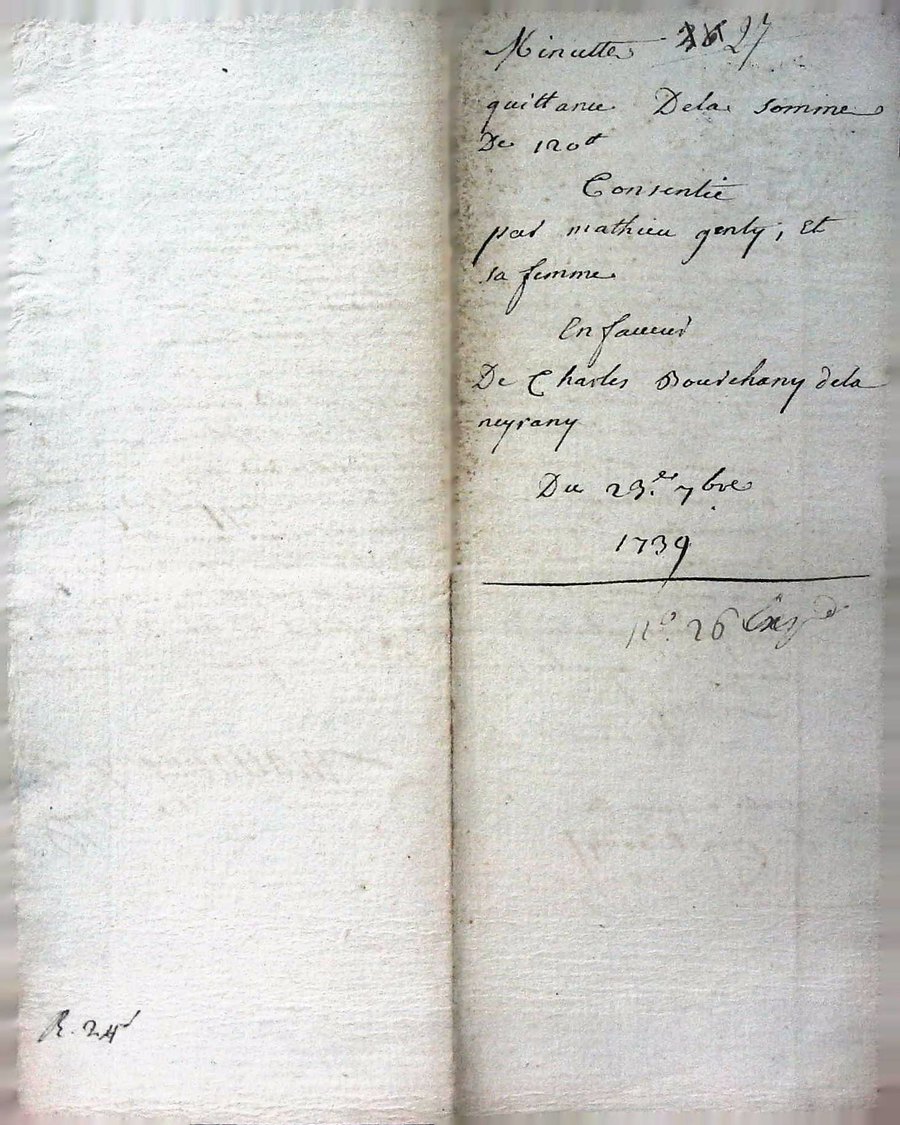 Minutte 27
quittance Dela somme
De 120tt
Consentie
par mathieu genty, Et
sa femme
En faveur
De Charles Bourchany dela
neyrany
Du 23.e 7bre
1739
n.o 26
R. 24